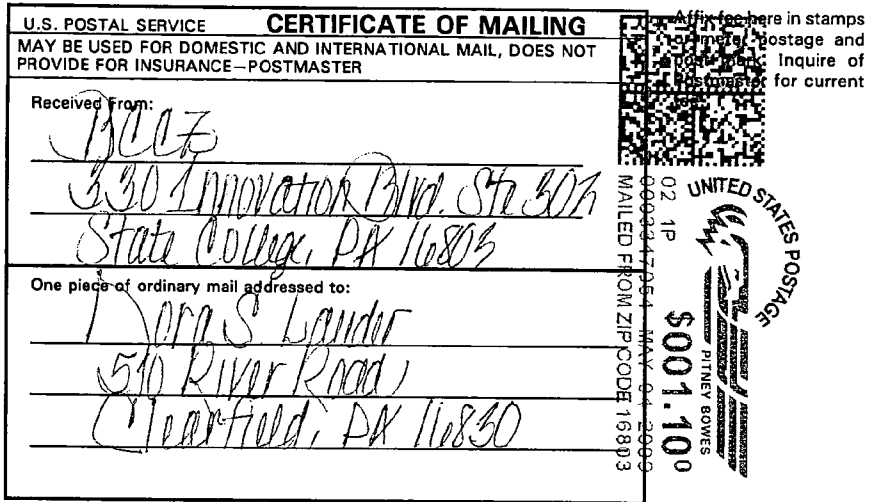 U.S. POSTAL SERVICE CERTIFICATE OF MAILING
MAY BE USED FOR DOMESTIC AND INTERNATIONAL MAIL, DOES NOT
PROVIDE FOR INSURANCE—POSTMASTER
Received From:
BCCZ
330 Innovation Blvd. Ste 302
State College, PA 16803
One piece of ordinary mail addressed to:
Dora S Lander
510 River Road
Clearfield, PA 16830
Affix fee here in stamps
or meter postage and
post mark. Inquire of
Postmaster for current
UNITED STATES POSTAGE
PITNEY BOWES
02 1P $001.10⁰
MAY 04 2009
MAILED FROM ZIP CODE 16803